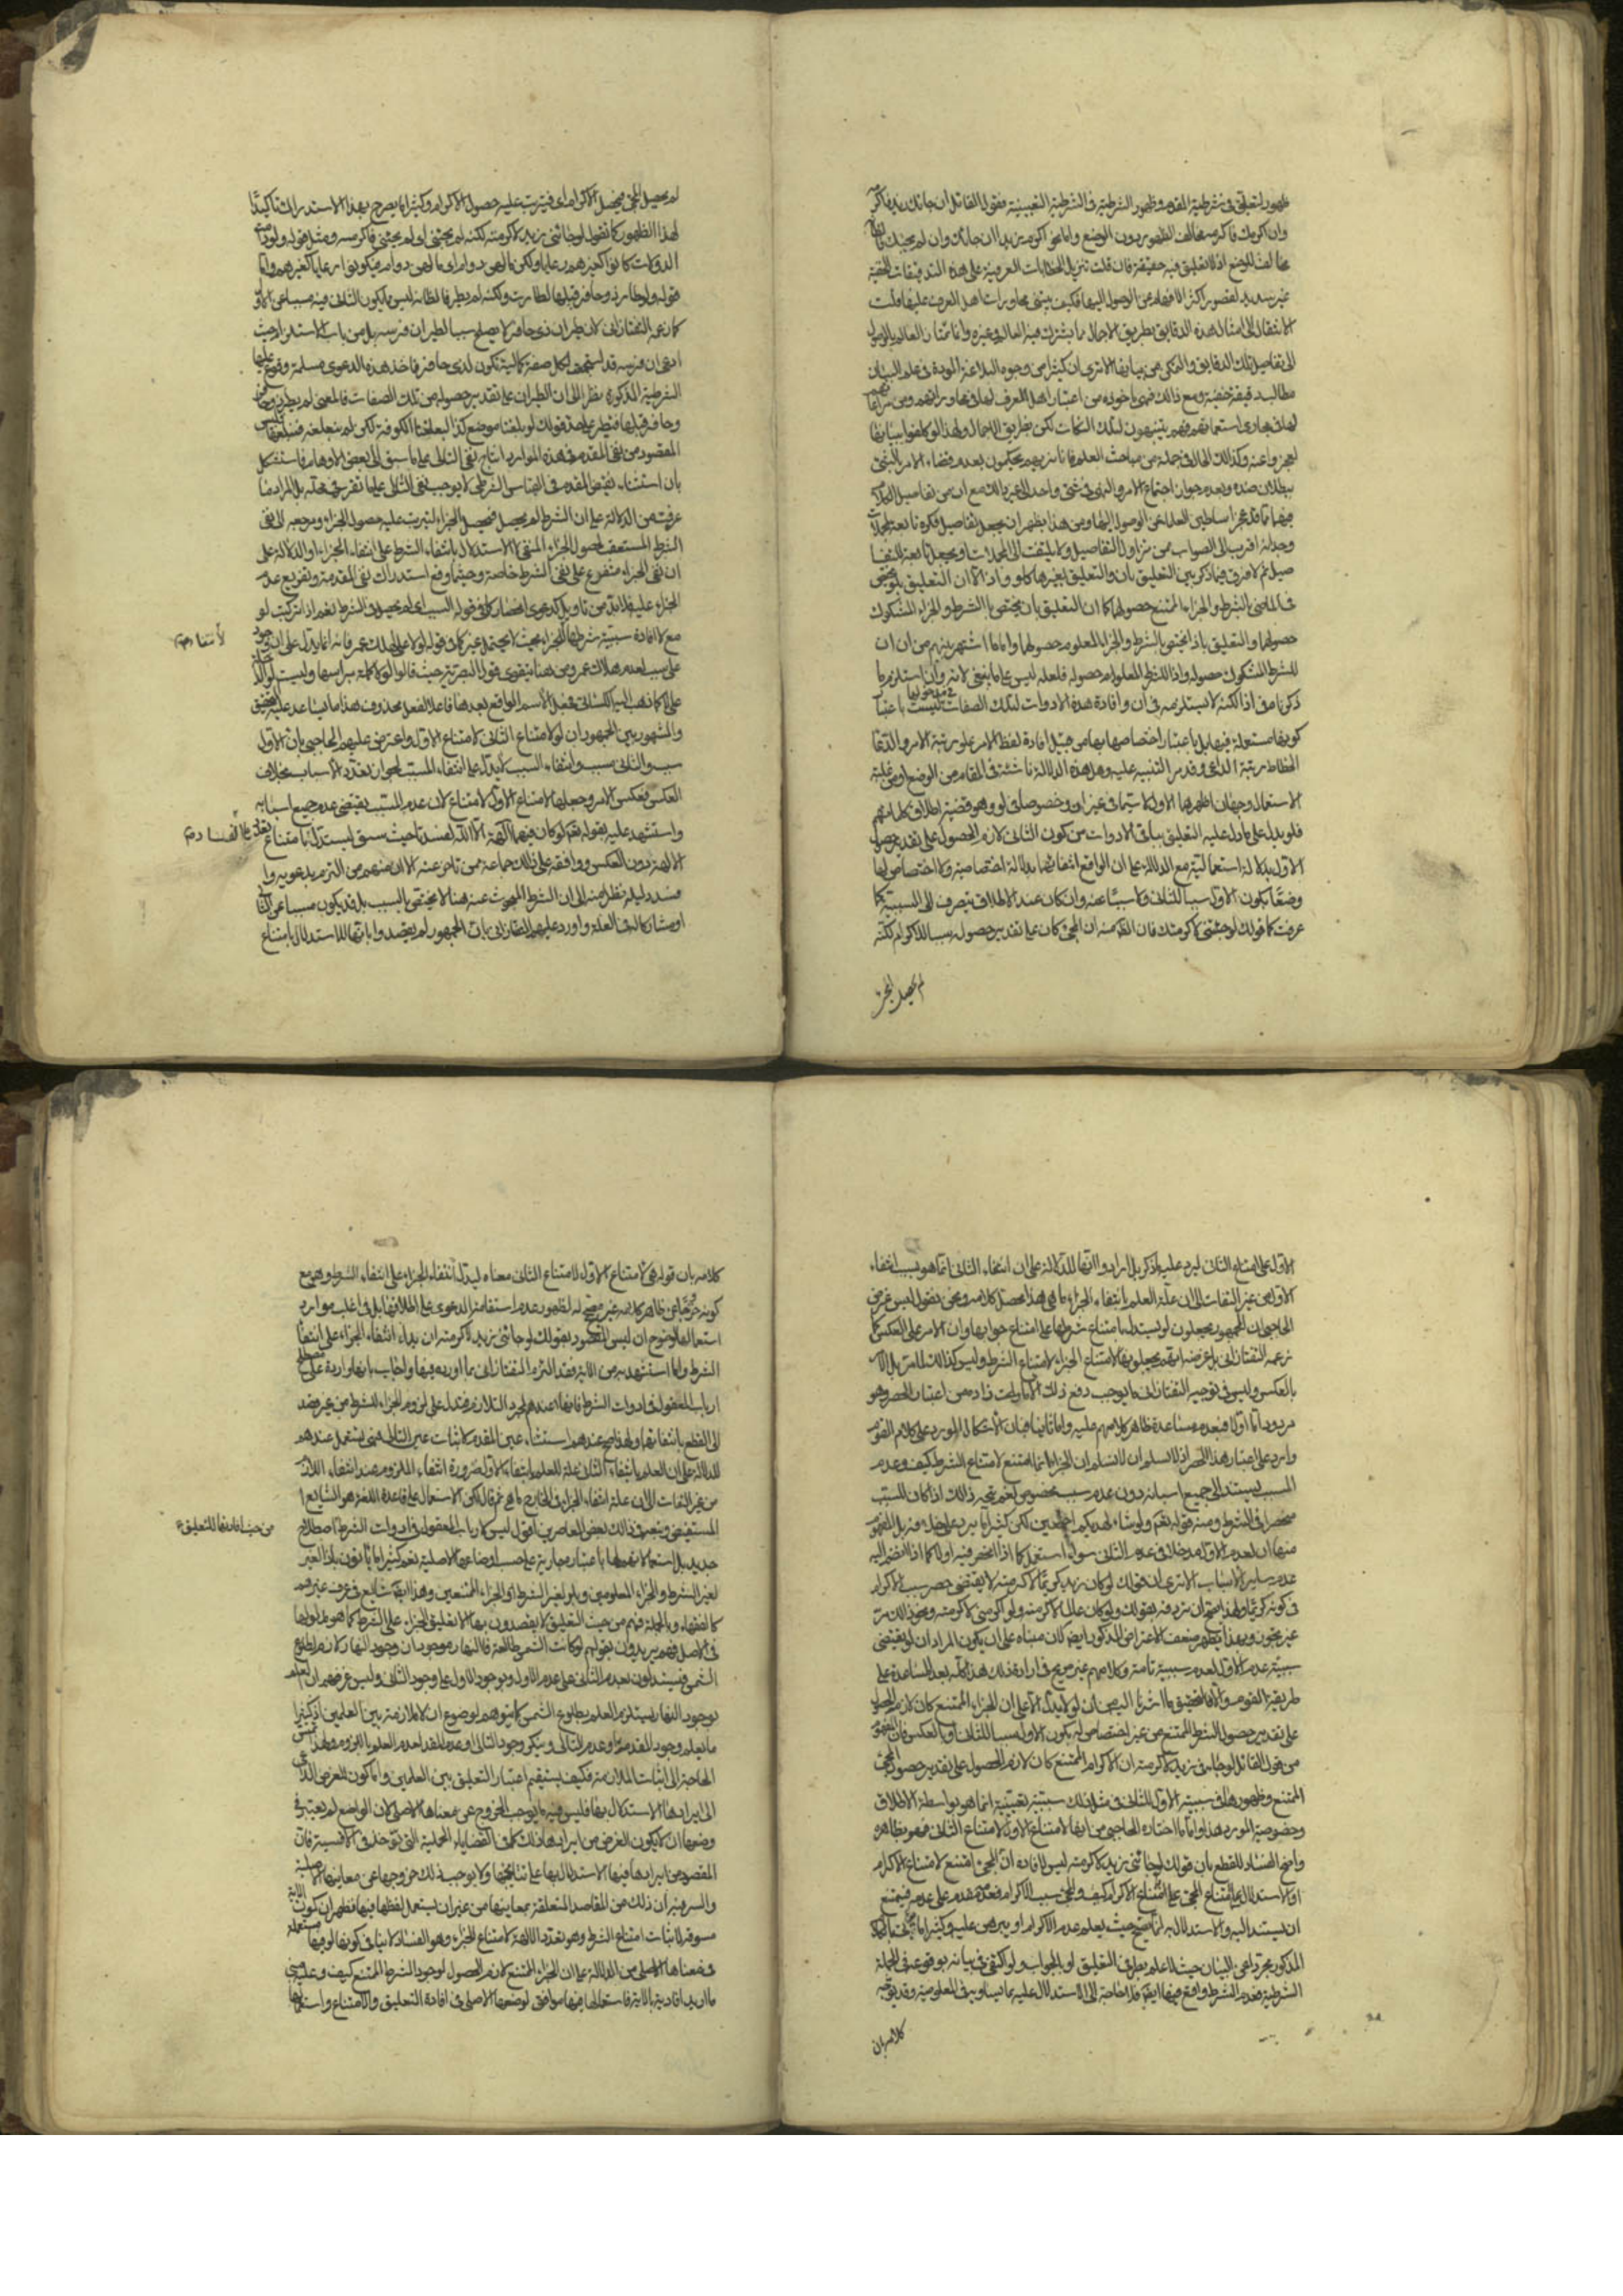 ظهور لتعليق في شرطية المقدم وظهور الشرطية في الشرطية التعيينية فقول القائل ان جاءك زيد فاكرمه
وان اكرمك فاكرمه مخالف الظهور دون الوضع واما نحو اكرم زيدا ان جاءك وان لم يجئك
مخالف للوضع اذ لا تعليق فيه حقيقة فان قلت تنزيل الخطابات العرفية على هذه التدقيقات الخفية
غير سديد لقصور اكثر الافهام عن الوصول اليها فكيف يبتنى محاورات اهل العرف عليها قلت
الانتقال الى امثال هذه الدقايق بطريق الاجمال ما يشترك فيه العالم وغيره وانما يمتاز العالم بالوصول
الى تفاصيل تلك الدقايق والتمكن من بيانها الا ترى ان كثيرا من وجوه البلاغة المودعة في علم البيان
مطالب دقيقة خفية ومع ذلك فهى ماخوذة من اعتبار اهل العرف لها في محاوراتهم ومن
لها في مجارى استعمالهم فهم يتنبهون لتلك النكات لكن بطريق الاجمال ولهذا لو كلفوا بيانها
لعجزوا عنه وكذلك الحال في جملة من مباحث العلم فانا نريهم يحكمون بعدم قضاء الامر بالشئ
ببطلان ضده وبعدم جواز اجتماع الامر والنهى في شئ واحد الى غير ذلك مع ان من تفاصيل الكلام
فيهما ما قد عجز اساطين العلماء عن الوصول اليها ومن هذا يظهر ان جعل تفاصيل فكره تابعة لمجملات
وجدانه اقرب الى الصواب ممن يزاول التفاصيل ولا يلتفت الى المجملات او يجعلها تابعة للتفا
صيل ثم لا فرق فيما ذكر بين التعليق بان والتعليق بغيرها كلو واذ الا ان التعليق بلو يختص
في الماضي بالشرط والجزاء الممتنع حصولهما كما ان التعليق بان يختص بالشرط والجزاء المشكوك
حصولهما والتعليق باذ يختص بالشرط والجزاء المعلوم حصولهما واما ما اشتهر بينهم من ان ان
للشرط المشكوك حصوله واذا للشرط المعلوم حصوله فلعله ليس على ما ينبغى لانه وان استلزم ما
ذكرنا في اذا لكنه لا يستلزمه في ان وافادة هذه الادوات لتلك الصفات في مدخولها ليست باعتبار
كونها مستعملة فيها بل باعتبار اختصاصها بها من قبيل افادة لفظ الامر علو رتبة الامر والدعاء
انحطاط رتبة الداعى وقد مر التنبيه عليه وهل هذه الدلالة ناشئة في المقام من الوضع او من غلبة
الاستعمال وجهان اظهرهما الاول لا سيما في غير ان وخصوصا في لو وهو قضية اطلاق كلامهم
فلو يدل على ما دل عليه التعليق بباقي الادوات من كون الثاني لازم الحصول على تقدير حصول
الاول بدلالة استعمالية مع الدلالة على ان الواقع انتفائهما بدلالة اختصاصية ولا اختصاص لها
وضعا بكون الاول سببا للثاني ولا مسببا عنه وان كان عند الاطلاق ينصرف الى السببية كما
عرفت كما في قولك لو جئتنى لاكرمتك فان الظ منه ان المجئ كان على تقدير حصوله سببا للاكرام لكنه
لم يحصل المجئ
لم يحصل المجئ فيحصل الاكرام اى فيترتب عليه حصول الاكرام وكثيرا ما يصرح بهذا الاستدراك تاكيدا
لهذا الظهور كما تقول لو جائنى زيد لاكرمته لكنه لم يجئنى اى لم يجئنى فاكرمه ومثل قوله ولو دامت
الدولات كانوا كغيرهم رعايا ولكن ما لهن دوام اى ما لهن دوام فيكونوا رعايا كغيرهم واما
قوله ولو طار ذو حافر قبلها لطارت ولكنه لم يطر فالظ انه ليس مما يكون الثاني فيه مسببا عن الاول
كما زعمه التفتازاني لان طيران ذى حافر لا يصلح سببا لطيران فرسه بل من باب الاستلزام حيث
ادعى ان فرسه قد استجمعت لكل صفة كمالية تكون لذى حافر فاخذ هذه الدعوى مسلمة وفرع عليها
الشرطية المذكورة نظرا الى ان الطيران على تقدير حصوله من تلك الصفات فالمعنى لم يطر ذو حافر
وحافر قبلها فتطير على حد قولك لو بلغنا موضع كذا لبلغنا الكوفة لكن لم نبلغه فنبلغها وليس
المقصود من نفى المقدم في هذه الموارد انتاج نفى التالى على ما سبق الى بعض الاوهام فاستشكل
بان استثناء نقيض المقدم في القياس الشرطى لا يوجب نفى التالى على ما تقرر في محله بل المراد ما
عرفت من الدلالة على ان الشرط لم يحصل فيحصل الجزاء لترتب عليه حصول الجزاء ومرجعه الى نفى
الشرط المستعقب لحصول الجزاء المنفى لا الاستدلال بانتفاء الشرط على انتفاء الجزاء او الدلالة على
ان نفى الجزاء متفرع على نفى الشرط خاصة وحيثما وقع استدراك نفى المقدم وتفريع عدم
الجزاء عليه فلا بد من تاويل كدعوى انحصار
مع لا افادة سببية شرطها للجزاء بحيث لا يحتمل غيره كما في قوله لو لا على لهلك عمر فانه انما يدل على ان وجود
لانتفاء
على سبب لعدم هلاك عمر ومن هنا يتقوى قول البصرية حيث قالوا لولا كلمة براسها وليست لو الداخلة
على لا كما ذهب اليه الكسائي فجعل الاسم الواقع بعدها فاعلا لفعل محذوف هذا ما يساعد عليه التحقيق
والمشهور بين الجمهور ان لو لامتناع الثاني لامتناع الاول واعترض عليهم الحاجبي بان الاول
سبب والثاني مسبب وانتفاء السبب لا يدل على انتفاء المسبب لجواز تعدد الاسباب بخلاف
العكس فعكس الامر وجعلها لامتناع الاول لامتناع الثاني لان عدم المسبب يقتضى عدم جميع اسبابه
واستشهد عليه بقوله تعالى لو كان فيهما آلهة الا الله لفسدتا حيث سيق ليستدل بامتناع
الفساد على تعدد
الالهة دون العكس ووافقه على ذلك جماعة ممن تاخر عنه الا ان منهم من
دليله نظرا منه الى ان الشرط المبحوث عنه هنا لا يختص بالسبب بل قد يكون مسببا عن الثاني
او مشاركا له في العلة واورد عليهم التفتازاني بان الجمهور لم يقصدوا بانها للاستدلال بامتناع
الاول على امتناع الثاني ليرد عليه ما ذكر بل ارادوا انها للدلالة على ان انتفاء الثاني انما هو بسبب انتفاء
الاول من غير التفات الى ان علة العلم بانتفاء الجزاء ما هى هذا محصل كلامه ونحن نقول ليس غرض
الحاجبي ان الجمهور يجعلون لو ليستدل بامتناع شرطها على امتناع جوابها وان الامر على العكس كما
زعمه التفتازاني بل غرضه انهم يجعلونها لامتناع الجزاء لامتناع الشرط وليس كذلك لما مر بل الامر
بالعكس وليس في توجيه التفتازاني ما يوجب دفع ذلك الا ما زاده من اعتبار الحصر وهو
مردود اما اولا فبعدم مساعدة ظاهر كلامهم عليه واما ثانيا فبان الاشكال المورد على كلام القوم
وارد على اعتبار هذا الحصر اذ لا نسلم ان الجزاء انما امتنع لامتناع الشرط كيف وعدم
المسبب يستند الى جميع اسبابه دون عدم سبب مخصوص نعم يتجه ذلك اذا كان السبب
منحصرا في الشرط ومنه قوله تعالى ولو شاء لهديكم اجمعين لكن كثيرا ما يرد على خلافه بل المفهوم
منها ان لعدم الاول مدخلا في عدم الثاني سواء استقل كما اذا انحصر فيه او لا كما اذا انضم اليه
عدم ساير الاسباب الا ترى ان قولك لو كان زيد كريما لاكرمته لا يقتضى حصر سبب الاكرام
في كونه كريما ولهذا صح ان تردفه بقولك ولو كان عالما لاكرمته ولو اكرمنى لاكرمته ونحو ذلك من
غير تجوز وبهذا يظهر ضعف الاعتراض المذكور ايضا لان مبناه على ان يكون المراد ان لو يقتضى
سببية عدم الاول لعدم سببية تامة وكلامهم غير صريح في ارادة ذلك هذا كله بعد المساعدة على
طريقة القوم والا فالتحقيق ما اشرنا اليه من ان لو لا يدل الا على ان الجزاء الممتنع كان لازم الحصول
على تقدير حصول الشرط الممتنع من غير اختصاص له بكون الاول سببا للثاني او بالعكس فان المفهوم
من قول القائل لو جاءنى زيد لاكرمته ان الاكرام الممتنع كان لازم الحصول على تقدير حصول المجئ
الممتنع وظهورها في سببية الاول للثاني في مثل ذلك سببية تعيينية انما هو بواسطة الاطلاق
وخصوصية المورد هذا واما ما اختاره الحاجبي من انها لامتناع الاول لامتناع الثاني فهو بظاهره
واضح الفساد للقطع بان قولك لو جائنى زيد لاكرمته ليس لافادة ان المجئ امتنع لامتناع الاكرام
او الاستدلال بامتناع المجئ على امتناع الاكرام كيف والمجئ سبب الاكرام فعدمه مقدم على عدمه فيمتنع
ان يستند اليه والاستدلال به انما يصح حيث يعلم عدم الاكرام او يبرهن عليه وكثيرا ما
المذكور مجرد اعن البيان حيث لا علم بطرفى التعليق او بالجواب ولو اكتفى في بيانه بوقوعه في الجملة
الشرطية فعدم الشرط واقع فيها ايضا فلا حاجة الى الاستدلال عليه بما يساويه في المعلومية وقد يوجه
كلامه بان
كلامه بان قوله هى لامتناع الاول لامتناع الثاني معناه ليدل انتفاء الجزاء على انتفاء الشرط وهو مع
كونه خروجا عن ظاهر كلامه غير مصحح له لظهور عدم استقامة الدعوى على اطلاقها بل في اغلب موارد
استعمالها لوضوح ان ليس المقصود بقولك لو جائنى زيد لاكرمته ان يدل انتفاء الجزاء على انتفاء
الشرط واما ما استشهد به من الاية فقد التزم التفتازاني بما اورده فيها واجاب بانها واردة على مصطلح
ارباب المعقول في ادوات الشرط فانها عندهم لمجرد التلازم فتدل على لزوم الجزاء للشرط من غير قصد
الى القطع بانتفائهما ولهذا صح عندهم استثناء عين المقدم لاثبات عين التالى فهى تستعمل عندهم
للدلالة على ان العلم بانتفاء الثاني علة للعلم بانتفاء الاول ضرورة انتفاء الملزوم عند انتفاء اللازم
من غير التفات الى ان علة انتفاء الجزاء في الخارج ما هى ثم قال لكن الاستعمال على قاعدة اللغة هو الشايع
المستفيض وتبعه في ذلك بعض المعاصرين اقول ليس لارباب المعقول في ادوات الشرط اصطلاح
من حيث افادتها للتعليق
جديد بل استعمالاتهم لها باعتبار مجارية على حسب اوضاعها الاصلية نعم كثيرا ما ياتون باذا لغير
لغير الشرط والجزاء المعلومين وبلو لغير الشرط او الجزاء الممتنعين وهذا ايضا شايع في عرف غيرهم
كالفقهاء وبالجملة فهم من حيث التعليق لا يقصدون بها الا تعليق الجزاء على الشرط كما هو مدلولها
في الاصل فهم يريدون بقولهم لو كانت الشمس طالعة فالنهار موجود ان وجود النهار لازم لطلوع
الشمس فيستدلون بعدم الثاني على عدم الاول وبوجود الاول على وجود الثاني وليس غرضهم ان العلم
بوجود النهار يستلزم العلم بطلوع الشمس كما يتوهم لوضوح ان لا ملازمة بين العلمين اذ كثيرا
ما نعلم وجود المقدم او عدم التالى وينكر وجود التالى او عدم المقدم لعدم العلم باللزوم ولهذا تمس
الحاجة الى اثبات الملازمة فكيف يستقيم اعتبار التعليق بين العلمين واما كون الغرض الداعى
الى ايرادها الاستدلال بها فليس فيه ما يوجب الخروج عن معناها الاصلى لان الواضع لم يعتبر في
وضعها ان لا يكون الغرض من ايرادها ذلك كما في القضايا الحملية التى تؤخذ في الاقيسة فان
المقصود من ايرادها فيها الاستدلال بها على نتائجها ولا يوجب ذلك خروجها عن معانيها الاصلية
والسر فيه ان ذلك من المقاصد المتعلقة بمعانيها من غير ان يستعمل لفظها فيها فظهر ان كون الاية
مسوقة لاثبات امتناع الشرط وهو تعدد الالهة لامتناع الجزاء وهو الفساد لا ينافى كون لو فيها مستعملة
في معناها الاصلى من الدلالة على ان الجزاء الممتنع لازم الحصول لوجود الشرط الممتنع كيف وعليه يبتنى
ما اريد افادته بالاية فاستعمالها فيها موافق لوضعها الاصلى في افادة التعليق والامتناع واستعمالها